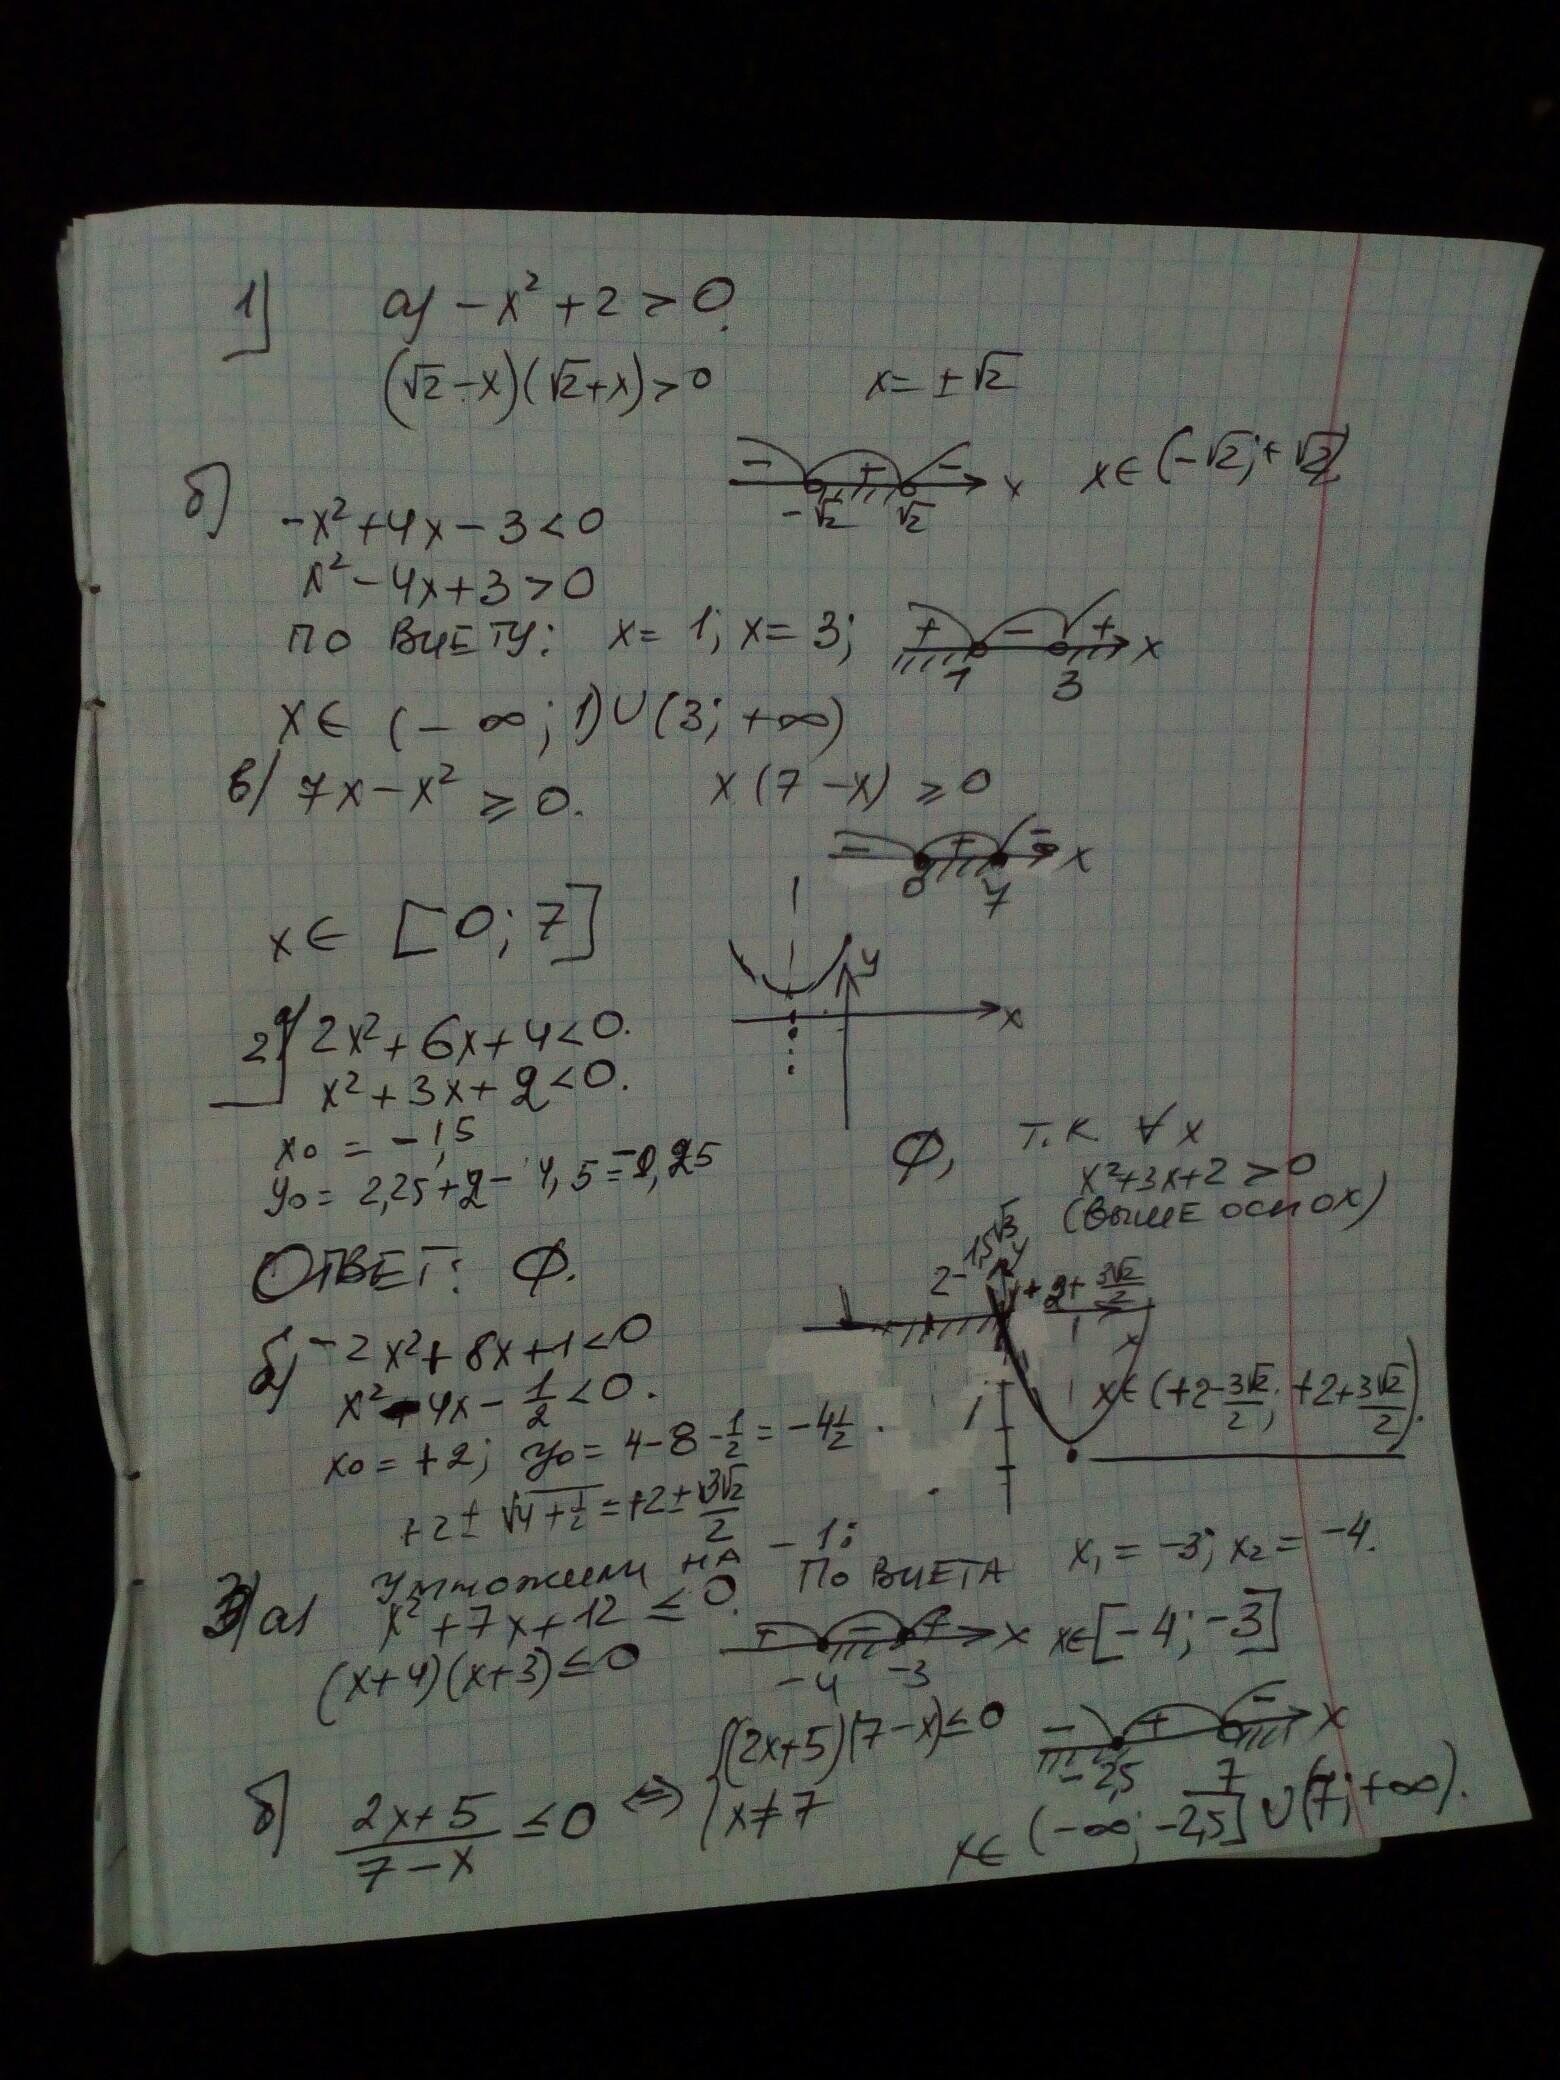 1) а) -x² + 2 > 0.
(√2 - x)(√2 + x) > 0 x = ± √2
- + - x
-√2 √2
x ∈ (-√2; +√2)
б) -x² + 4x - 3 < 0
x² - 4x + 3 > 0
ПО ВИЕТУ: x = 1; x = 3;
+ - + x
1 3
x ∈ (-∞; 1) ∪ (3; +∞)
в) 7x - x² ≥ 0. x(7 - x) ≥ 0
- + - x
0 7
x ∈ [0; 7]
y
x
2) а) 2x² + 6x + 4 < 0.
x² + 3x + 2 < 0.
x₀ = -1,5
y₀ = 2,25 + 2 - 4,5 = -0,25
Ф, т.к. ∀x
x² + 3x + 2 > 0
(ВЫШЕ ОСИ OX)
ОТВЕТ: Ф.
y
+2 + 3√2/2
x
б) -2x² + 8x + 1 < 0
x² - 4x - 1/2 < 0.
x₀ = +2; y₀ = 4 - 8 - 1/2 = -4 1/2
x ∈ (+2 - 3√2/2; +2 + 3√2/2).
+2 ± √4 + 1/2 = +2 ± 3√2/2
Умножили НА -1:
3) а) x² + 7x + 12 ≤ 0. ПО ВИЕТА x₁ = -3; x₂ = -4.
(x + 4)(x + 3) ≤ 0
+ - + x
-4 -3
x ∈ [-4; -3]
б) 2x + 5 / 7 - x ≤ 0 ⇔ { (2x + 5)(7 - x) ≤ 0
x ≠ 7
- + - x
-2,5 7
x ∈ (-∞; -2,5] ∪ (7; +∞).